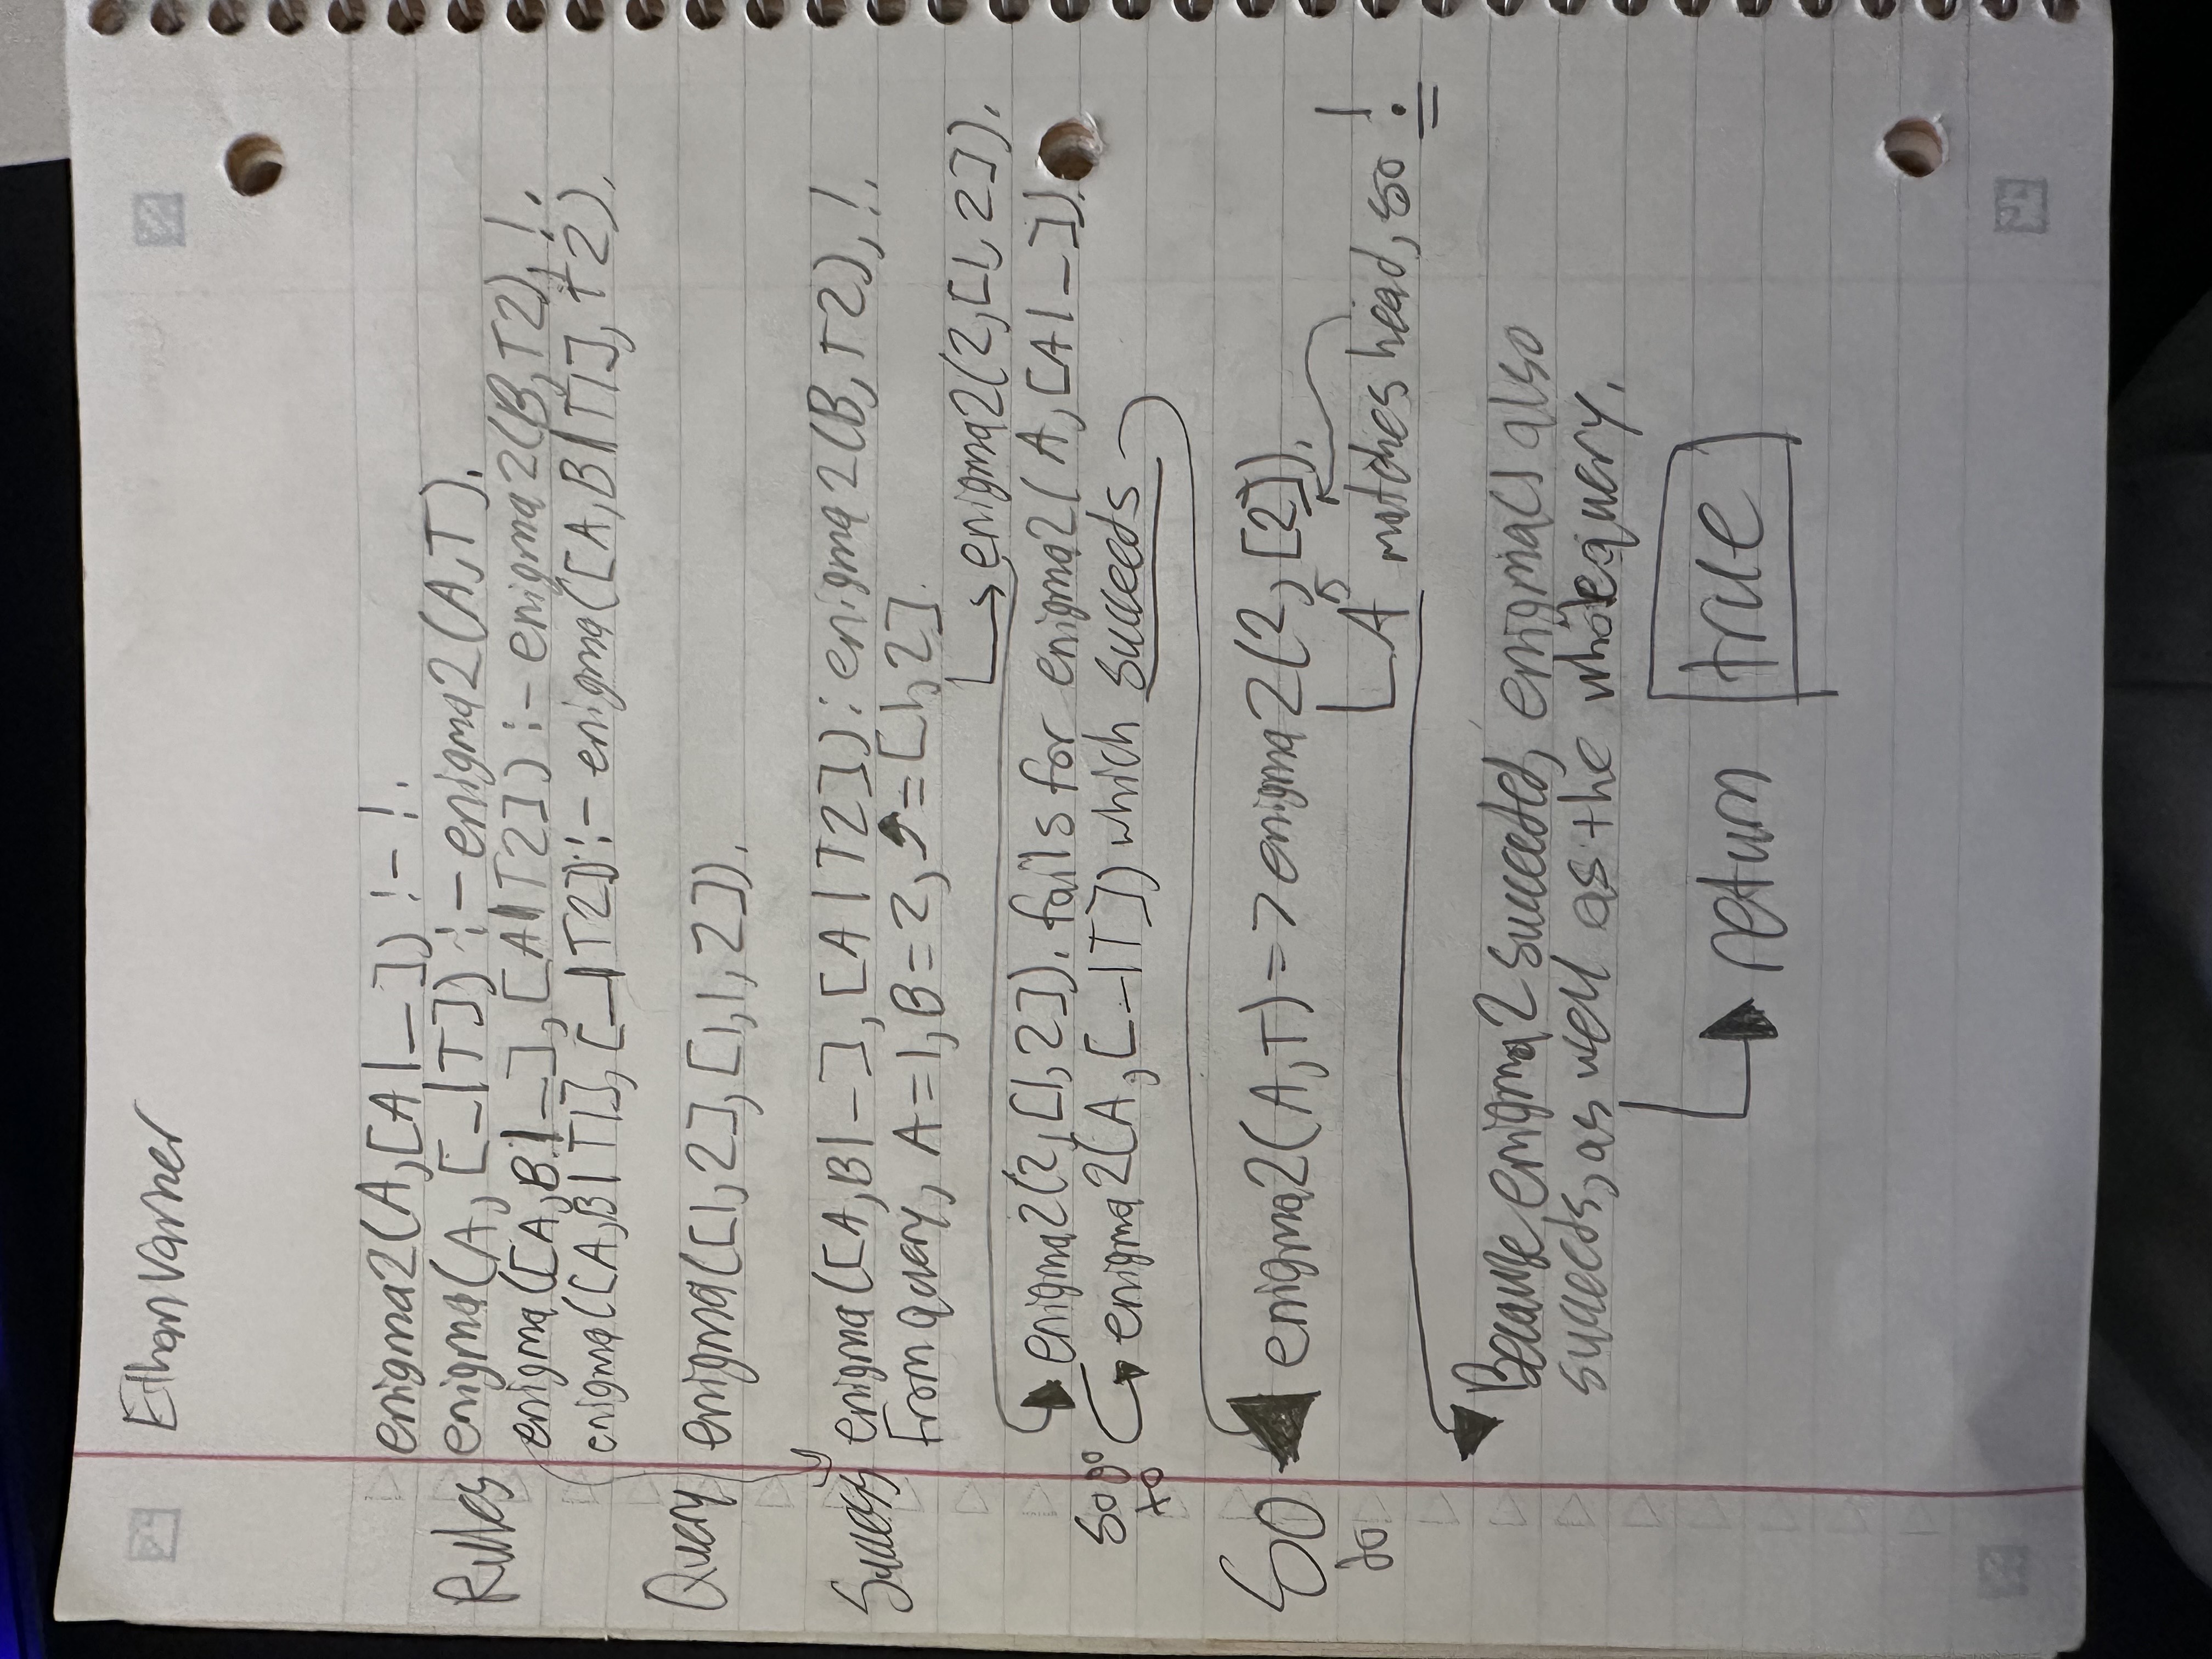 Ethan Varner
enigma2(A,[A|_]) :- !.
Rules
enigma(A, [_|T]) :- enigma2(A,T).
enigma([A,B|_], [A|T2]) :- enigma2(B,T2), !.
enigma([A,B|T1], [_|T2]) :- enigma([A,B|T1], T2).
Query
enigma([1,2],[1,1,2]).
Success
enigma([A,B|_], [A|T2]): enigma2(B,T2), !.
From query, A=1, B=2, ⤴=[1,2].
↳ enigma2(2,[1,2]).
enigma2(2,[1,2]). fails for enigma2(A,[A|_]).
So go to
enigma2(A,[_|T]) which succeeds
So do
enigma2(A,T) => enigma2(2,[2]).
A matches head, so !
Because enigma2 succeeded, enigma() also
succeeds, as well as the whole query.
return true